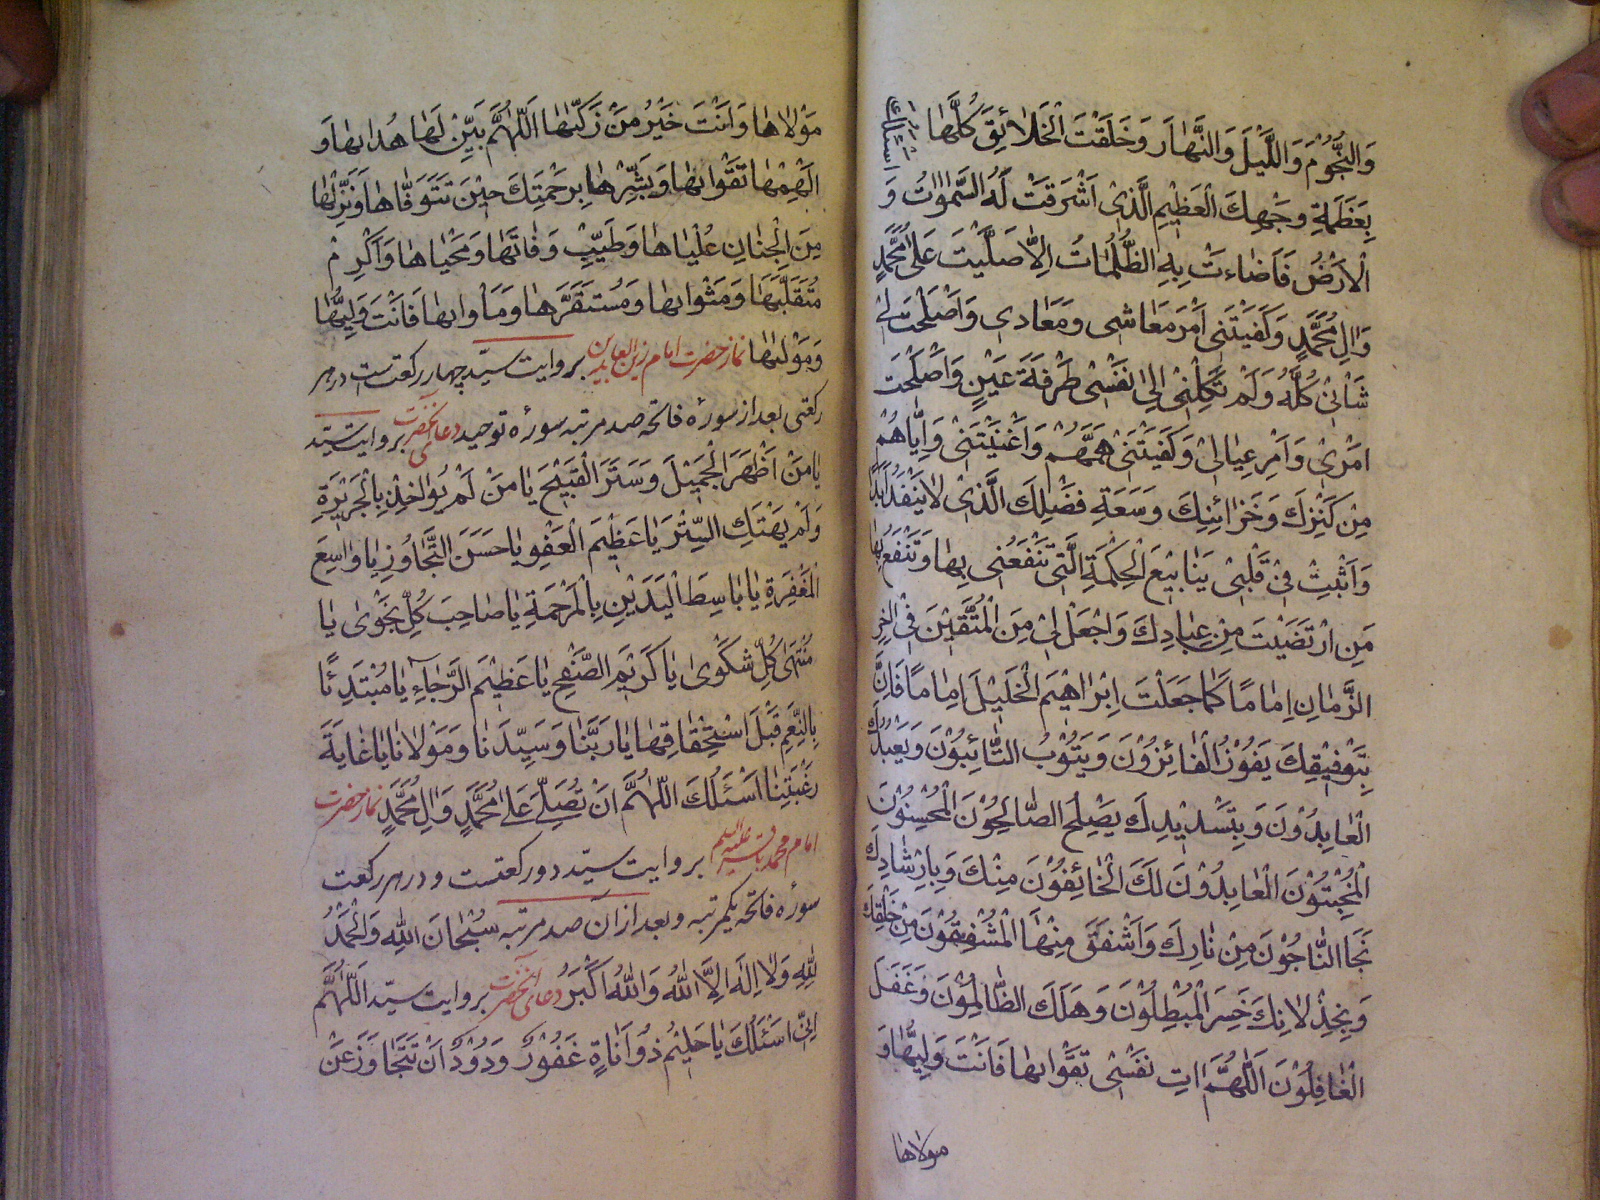 وَالنُّجُوْمَ وَاللَّيْلَ وَالنَّهٰارَ وَخَلَقْتَ الْخَلائِقَ كُلَّهٰا اسئلك
بِعَظَمَةِ وَجْهِكَ الْعَظِيْمِ الَّذِىْ اَشْرَقَتْ لَهُ السَّمٰوٰاتُ وَ
الْاَرْضُ فَاَضٰاءَتْ بِهِ الظُّلُمٰاتُ اِلّٰا صَلَّيْتَ عَلىٰ مُحَمَّدٍ
وَاٰلِ مُحَمَّدٍ وَكَفَيْتَنِى اَمْرَ مَعٰاشِى وَمَعٰادِى وَاَصْلَحْتَ لِىْ
شَأْنِىْ كُلَّهُ وَلَمْ تَكِلْنِىْ اِلىٰ نَفْسِىْ طَرْفَةَ عَيْنٍ وَاَصْلَحْتَ
اَمْرِىْ وَاَمْرَ عِيٰالِىْ وَكَفَيْتَنِىْ هَمَّهُمْ وَاَغْنَيْتَنِىْ وَاِيّٰاهُمْ
مِنْ كَنْزِكَ وَخَزٰائِنِكَ وَسَعَةِ فَضْلِكَ الَّذِىْ لٰا يَنْفَدُ اَبَدًا
وَاَثْبِتْ فِىْ قَلْبِىْ يَنٰابِيْعَ الْحِكْمَةِ الَّتِى تَنْفَعُنِى بِهٰا وَتَنْفَعُ بِهٰا
مَنِ ارْتَضَيْتَ مِنْ عِبٰادِكَ وَاجْعَلْ لِىْ مِنَ الْمُتَّقِيْنَ فِىْ اٰخِرِ
الزَّمٰانِ اِمٰامًا كَمٰا جَعَلْتَ اِبْرٰاهِيْمَ الْخَلِيْلَ اِمٰامًا فَاِنَّ
بِتَوْفِيْقِكَ يَفُوْزُ الْفٰائِزُوْنَ وَيَتُوْبُ التّٰائِبُوْنَ وَيَعْبُدُكَ
الْعٰابِدُوْنَ وَبِتَسْدِيْدِكَ يَصْلُحُ الصّٰالِحُوْنَ الْمُحْسِنُوْنَ
الْمُخْبِتُوْنَ الْعٰابِدُوْنَ لَكَ الْخٰائِفُوْنَ مِنْكَ وَبِاِرْشٰادِكَ
نَجَا النّٰاجُوْنَ مِنْ نٰارِكَ وَاَشْفَقَ مِنْهَا الْمُشْفِقُوْنَ مِنْ خَلْقِكَ
وَبِخِذْلٰانِكَ خَسِرَ الْمُبْطِلُوْنَ وَهَلَكَ الظّٰالِمُوْنَ وَغَفَلَ
الْغٰافِلُوْنَ اَللّٰهُمَّ اٰتِ نَفْسِىْ تَقْوٰيهٰا فَاَنْتَ وَلِيُّهٰا وَ
مولاها
مَوْلاٰهٰا وَاَنْتَ خَيْرُ مَنْ زَكّٰيهٰا اَللّٰهُمَّ بَيِّنْ لَهٰا هُدٰيهٰا وَ
اَلْهِمْهٰا تَقْوٰيهٰا وَبَشِّرْهٰا بِرَحْمَتِكَ حِيْنَ تَتَوَفّٰاهٰا وَنَزِّلْهٰا
مِنَ الْجِنٰانِ عُلْيٰاهٰا وَطَيِّبْ وَفٰاتَهٰا وَمَحْيٰاهٰا وَاَكْرِمْ
مُتَقَلَّبَهٰا وَمَثْوٰيهٰا وَمُسْتَقَرَّهٰا وَمَأْوٰيهٰا فَاَنْتَ وَلِيُّهٰا
وَمَوْلٰيهٰا نماز حضرت امام زين العابدين بروايت سيّد چهار ركعتست در هر
ركعتى بعد از سورۀ فاتحه صد مرتبه سورۀ توحيد دعاى آنحضرت بروايت سيّد
يٰا مَنْ اَظْهَرَ الْجَمِيْلَ وَسَتَرَ الْقَبِيْحَ يٰا مَنْ لَمْ يُؤٰاخِذْ بِالْجَرِيْرَةِ
وَلَمْ يَهْتِكِ السِّتْرَ يٰا عَظِيْمَ الْعَفْوِ يٰا حَسَنَ التَّجٰاوُزِ يٰا وٰاسِعَ
الْمَغْفِرَةِ يٰا بٰاسِطَ الْيَدَيْنِ بِالرَّحْمَةِ يٰا صٰاحِبَ كُلِّ نَجْوىٰ يٰا
مُنْتَهىٰ كُلِّ شَكْوىٰ يٰا كَرِيْمَ الصَّفْحِ يٰا عَظِيْمَ الرَّجٰاءِ يٰا مُبْتَدِئًا
بِالنِّعَمِ قَبْلَ اسْتِحْقٰاقِهٰا يٰا رَبَّنٰا وَسَيِّدَنٰا وَمَوْلٰانٰا يٰا غٰايَةَ
رَغْبَتِنٰا اَسْئَلُكَ اللّٰهُمَّ اَنْ تُصَلِّىَ عَلىٰ مُحَمَّدٍ وَاٰلِ مُحَمَّدٍ نماز حضرت
امام محمد باقر عليه السلم بروايت سيّد دو ركعتست و در هر ركعت
سورۀ فاتحه يكمرتبه و بعد از آن صد مرتبه سُبْحٰانَ اللّٰهِ وَالْحَمْدُ
لِلّٰهِ وَلٰا اِلٰهَ اِلَّا اللّٰهُ وَاللّٰهُ اَكْبَرُ دعاى آنحضرت بروايت سيّد اَللّٰهُمَّ
اِنِّى اَسْئَلُكَ يٰا حَلِيْمُ ذُوْ اَنٰاةٍ غَفُوْرٌ وَدُوْدٌ اَنْ تَتَجٰاوَزَ عَنْ